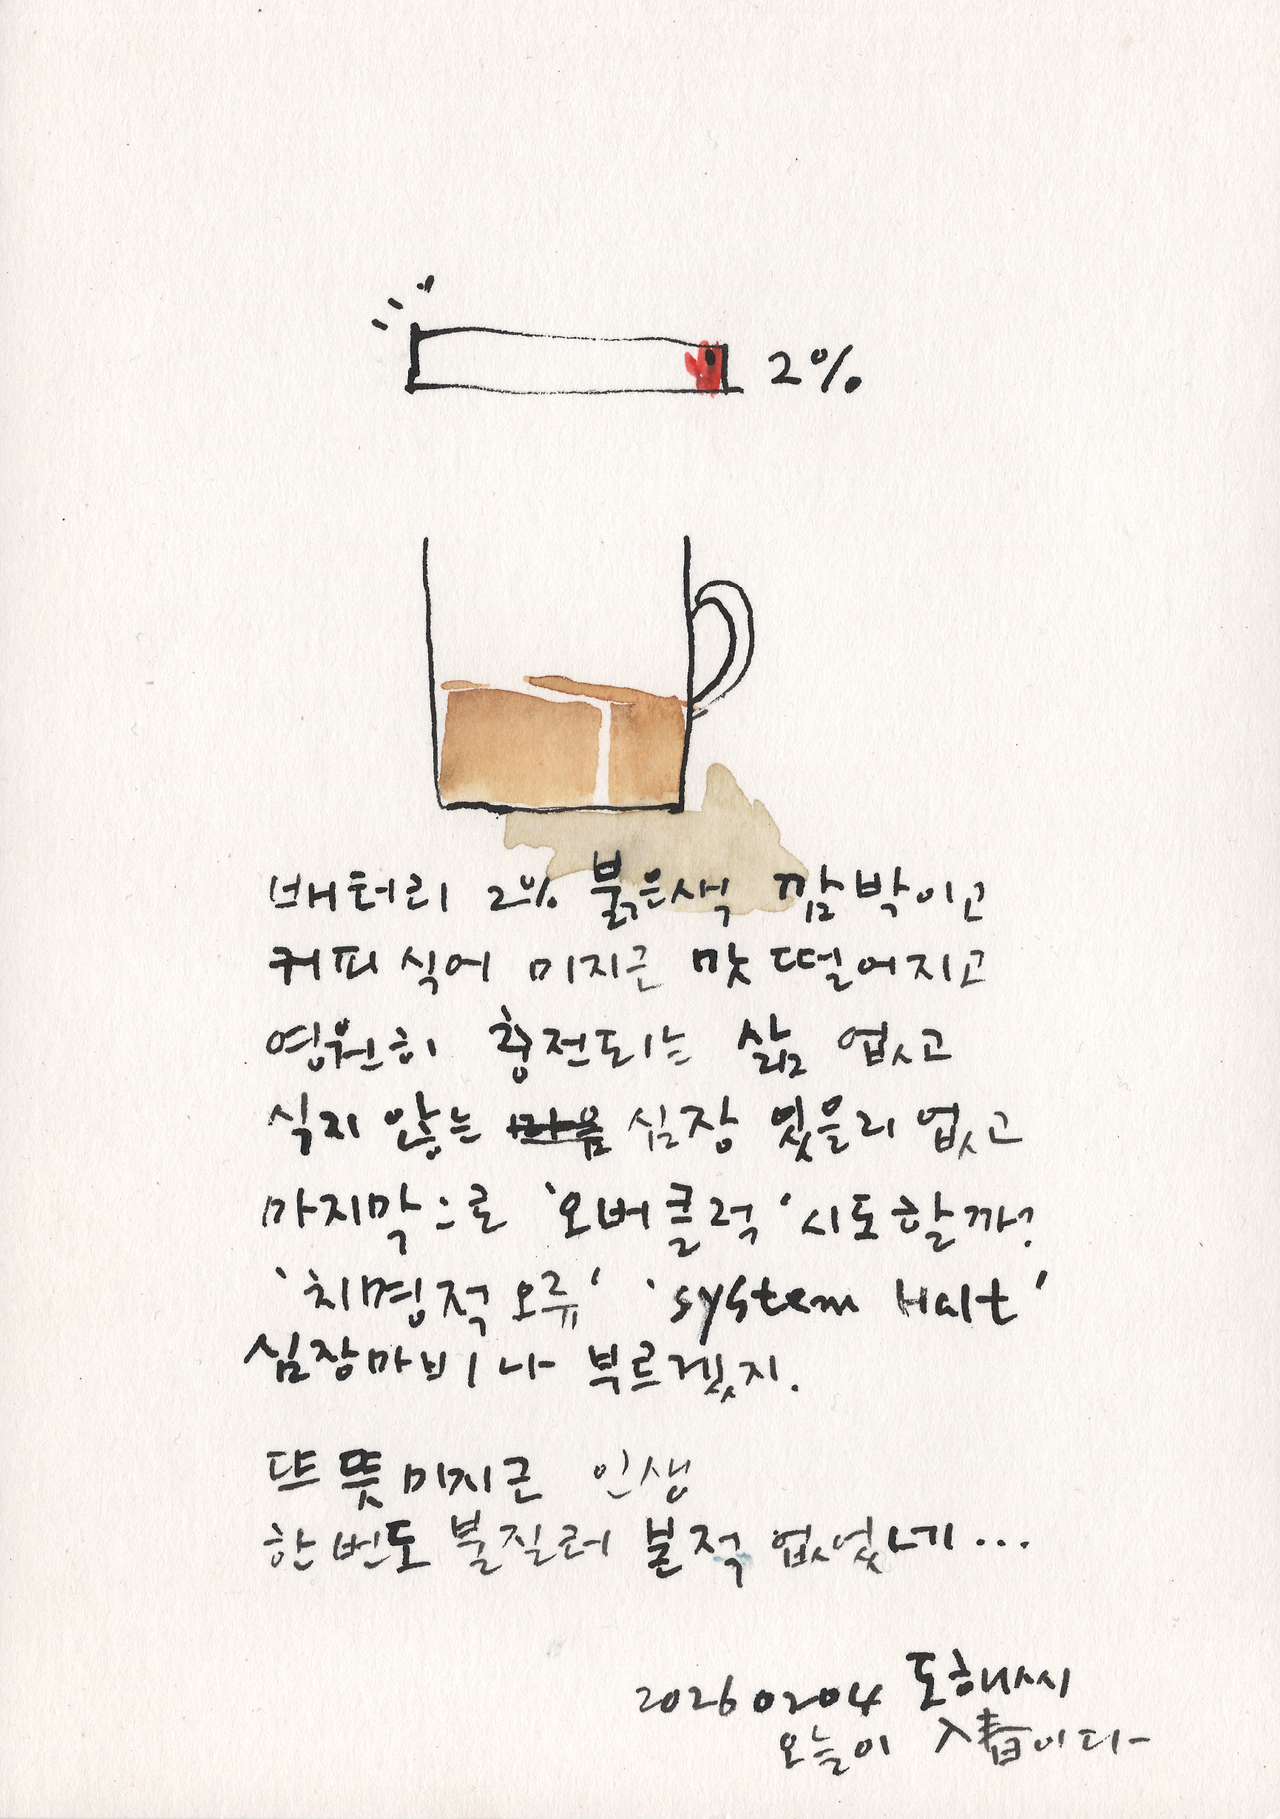 2%
배터리 2% 붉은색 깜박이고
커피 식어 미지근 맛 떨어지고
영원히 충전되는 삶 없고
식지 않는 심장 있을리 없고
마지막으로 '오버클럭' 시도할까?
'치명적 오류' 'system Halt'
심장마비나 부르겠지.
뜨뜻미지근 인생
한번도 불질러 본적 없었네...
20260204 도해씨
오늘이 入春이다